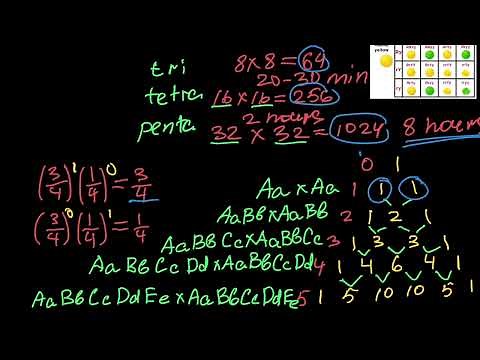 tri 8×8=64
20-30 min
tetra 16×16=256
2 hours
penta 32 × 32=1024 8 hours
yellow
0 1
(3/4)^1 (1/4)^0 = 3/4
Aa×Aa 1 1 1
(3/4)^0 (1/4)^1 = 1/4
AaBb×AaBb 2 1 2 1
AaBbCc×AaBbCc 3 1 3 3 1
AaBbCcDd×AaBbCcDd 4 1 4 6 4 1
AaBbCcDdEe×AaBbCcDdEe 5 1 5 10 10 5 1